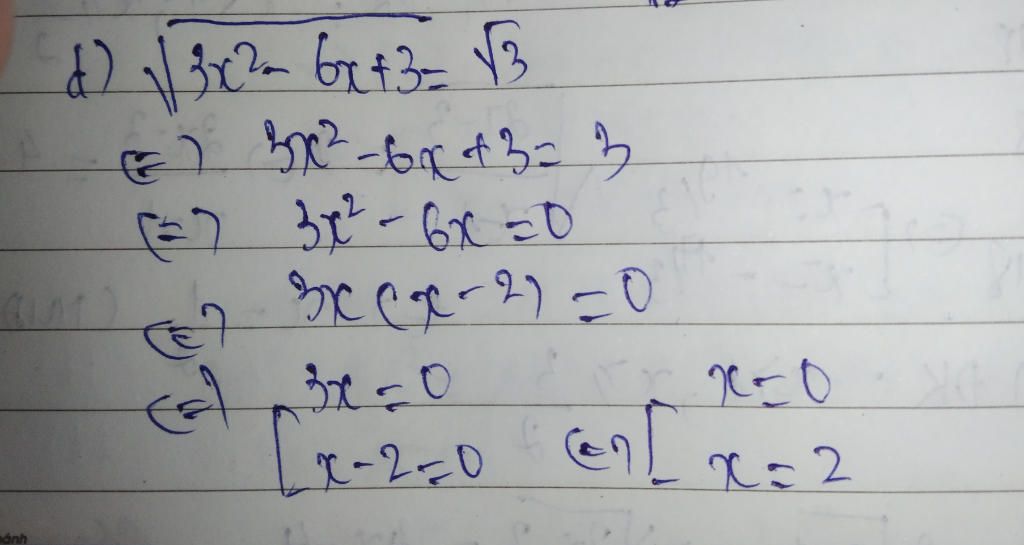 d) √(3x² - 6x + 3) = √3
<=> 3x² - 6x + 3 = 3
<=> 3x² - 6x = 0
<=> 3x (x - 2) = 0
<=> [ 3x = 0 <=> [ x = 0
x - 2 = 0 x = 2